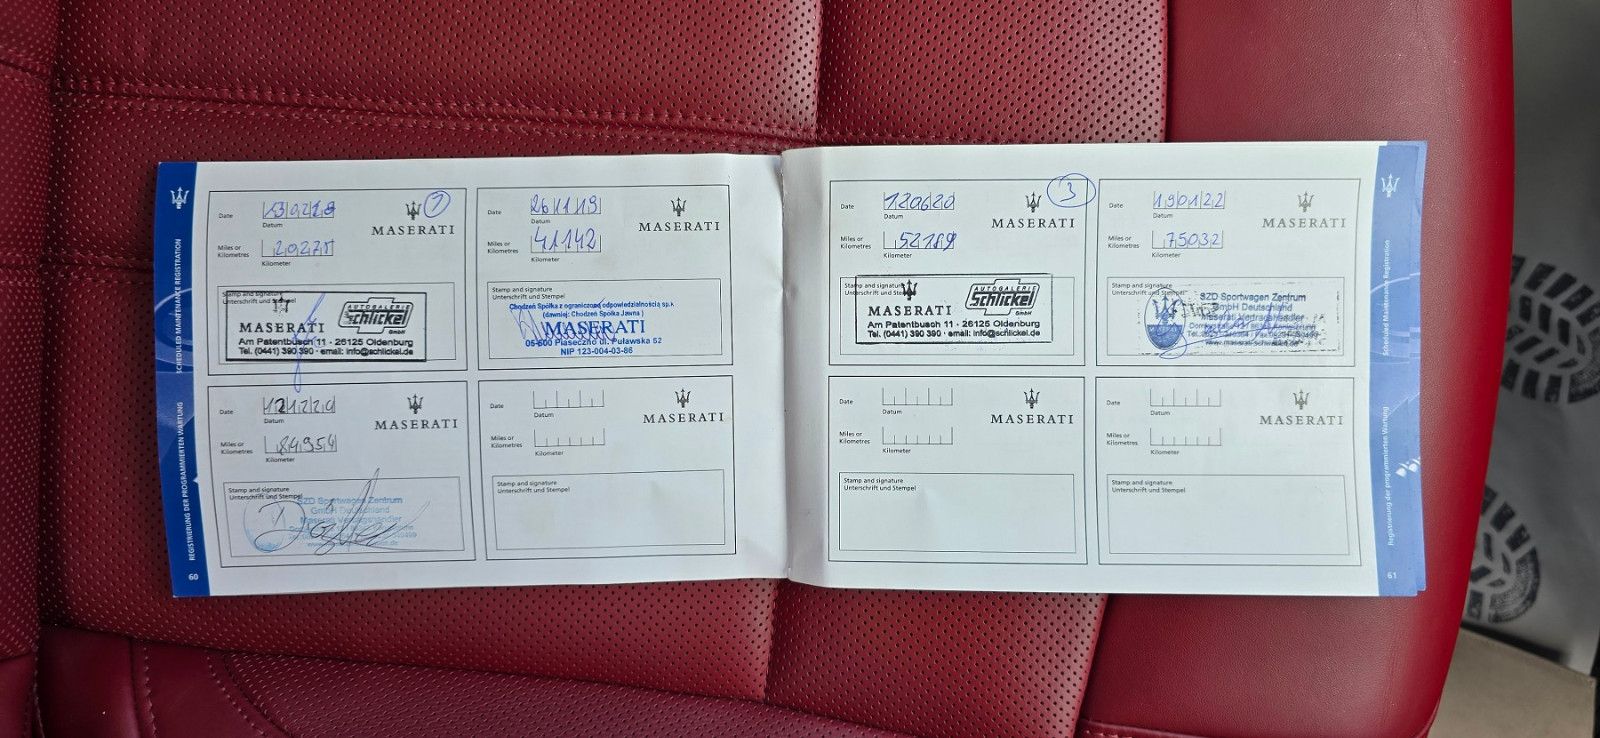 SCHEDULED MAINTENANCE REGISTRATION
REGISTRIERUNG DER PROGRAMMIERTEN WARTUNG
60
Date
Datum
1
MASERATI
Miles or
Kilometres
Kilometer
Stamp and signature
Unterschrift und Stempel
MASERATI
AUTOGALERIE
Schlickel
GmbH
Am Patentbusch 11 - 26125 Oldenburg
Tel. (0441) 390 390 · email: info@schlickel.de
Date
26 11 19
Datum
MASERATI
Miles or
Kilometres
41142
Kilometer
Stamp and signature
Unterschrift und Stempel
Chodzeń Spółka z ograniczoną odpowiedzialnością sp.k
(dawniej: Chodzeń Spółka Jawna )
MASERATI
05-500 Piaseczno ul. Puławska 52
NIP 123-004-03-86
Date
Datum
MASERATI
Miles or
Kilometres
84954
Kilometer
Stamp and signature
Unterschrift und Stempel
SZD Sportwagen Zentrum
GmbH Deutschland
Maserati Vertragshändler
Date
Datum
MASERATI
Miles or
Kilometres
Kilometer
Stamp and signature
Unterschrift und Stempel
Date
120620
Datum
3
MASERATI
Miles or
Kilometres
52189
Kilometer
Stamp and signature
Unterschrift und
MASERATI
AUTOGALERIE
Schlickel
GmbH
Am Patentbusch 11 - 26125 Oldenburg
Tel. (0441) 390 390 · email: info@schlickel.de
Date
190122
Datum
MASERATI
Miles or
Kilometres
75032
Kilometer
Stamp and signature
Unterschrift und Stempel
SZD Sportwagen Zentrum
GmbH Deutschland
Maserati Vertragshändler
Date
Datum
MASERATI
Miles or
Kilometres
Kilometer
Stamp and signature
Unterschrift und Stempel
Date
Datum
MASERATI
Miles or
Kilometres
Kilometer
Stamp and signature
Unterschrift und Stempel
Scheduled Maintenance Registration
Registrierung der programmierten Wartung
61